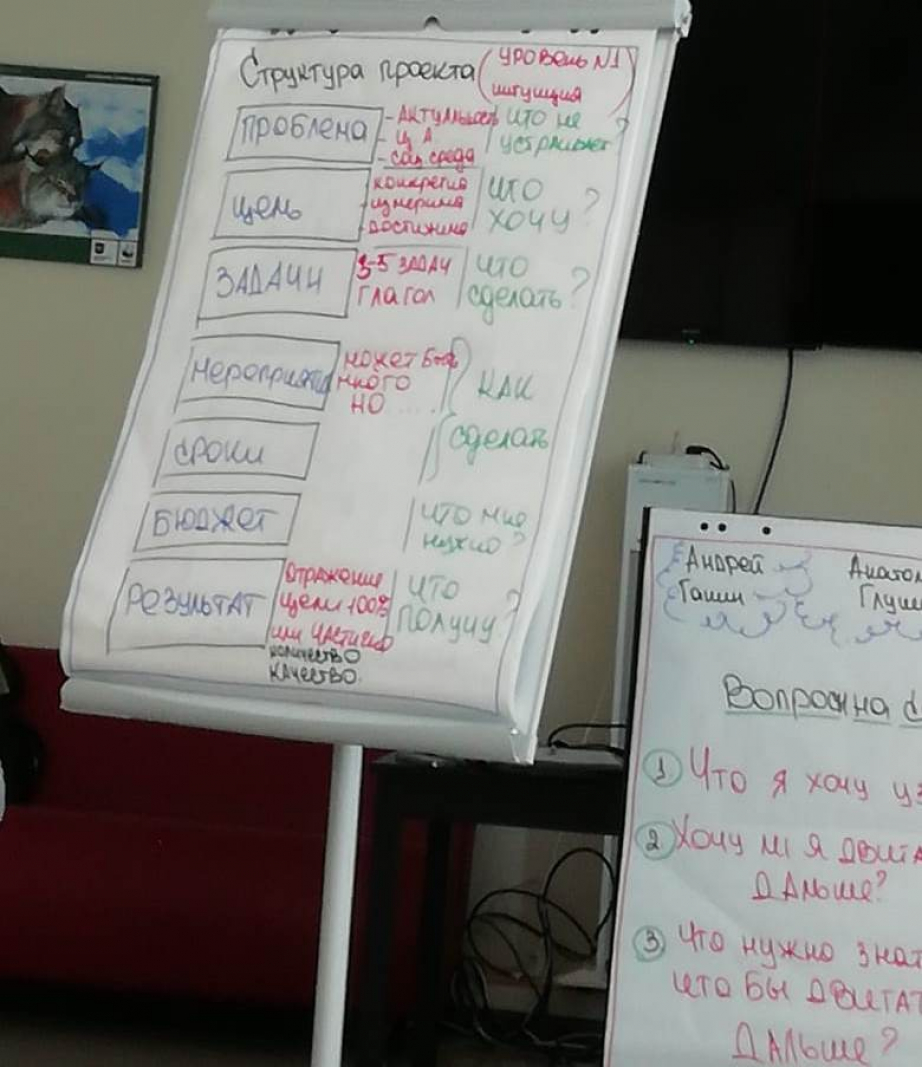 Структура проекта (уровень №1
интуиция)
Проблема - Актуальность что не
- Ц А устраивает?
- соц. среда
цель конкретна что
измерима хочу?
достижима
ЗАДАЧИ 3-5 задач что
глагол сделать?
мероприятия может быть как
много
НО ....
сроки сделать
БЮДЖЕТ что мне
нужно?
РЕЗУЛЬТАТ отражение что
цели 100% получу?
или частично
количество
качество.
Андрей
Гашин
Вопрос на
1 Что я хочу
2 Хочу ли я
дальше?
3 Что нужно
что бы
дальше?